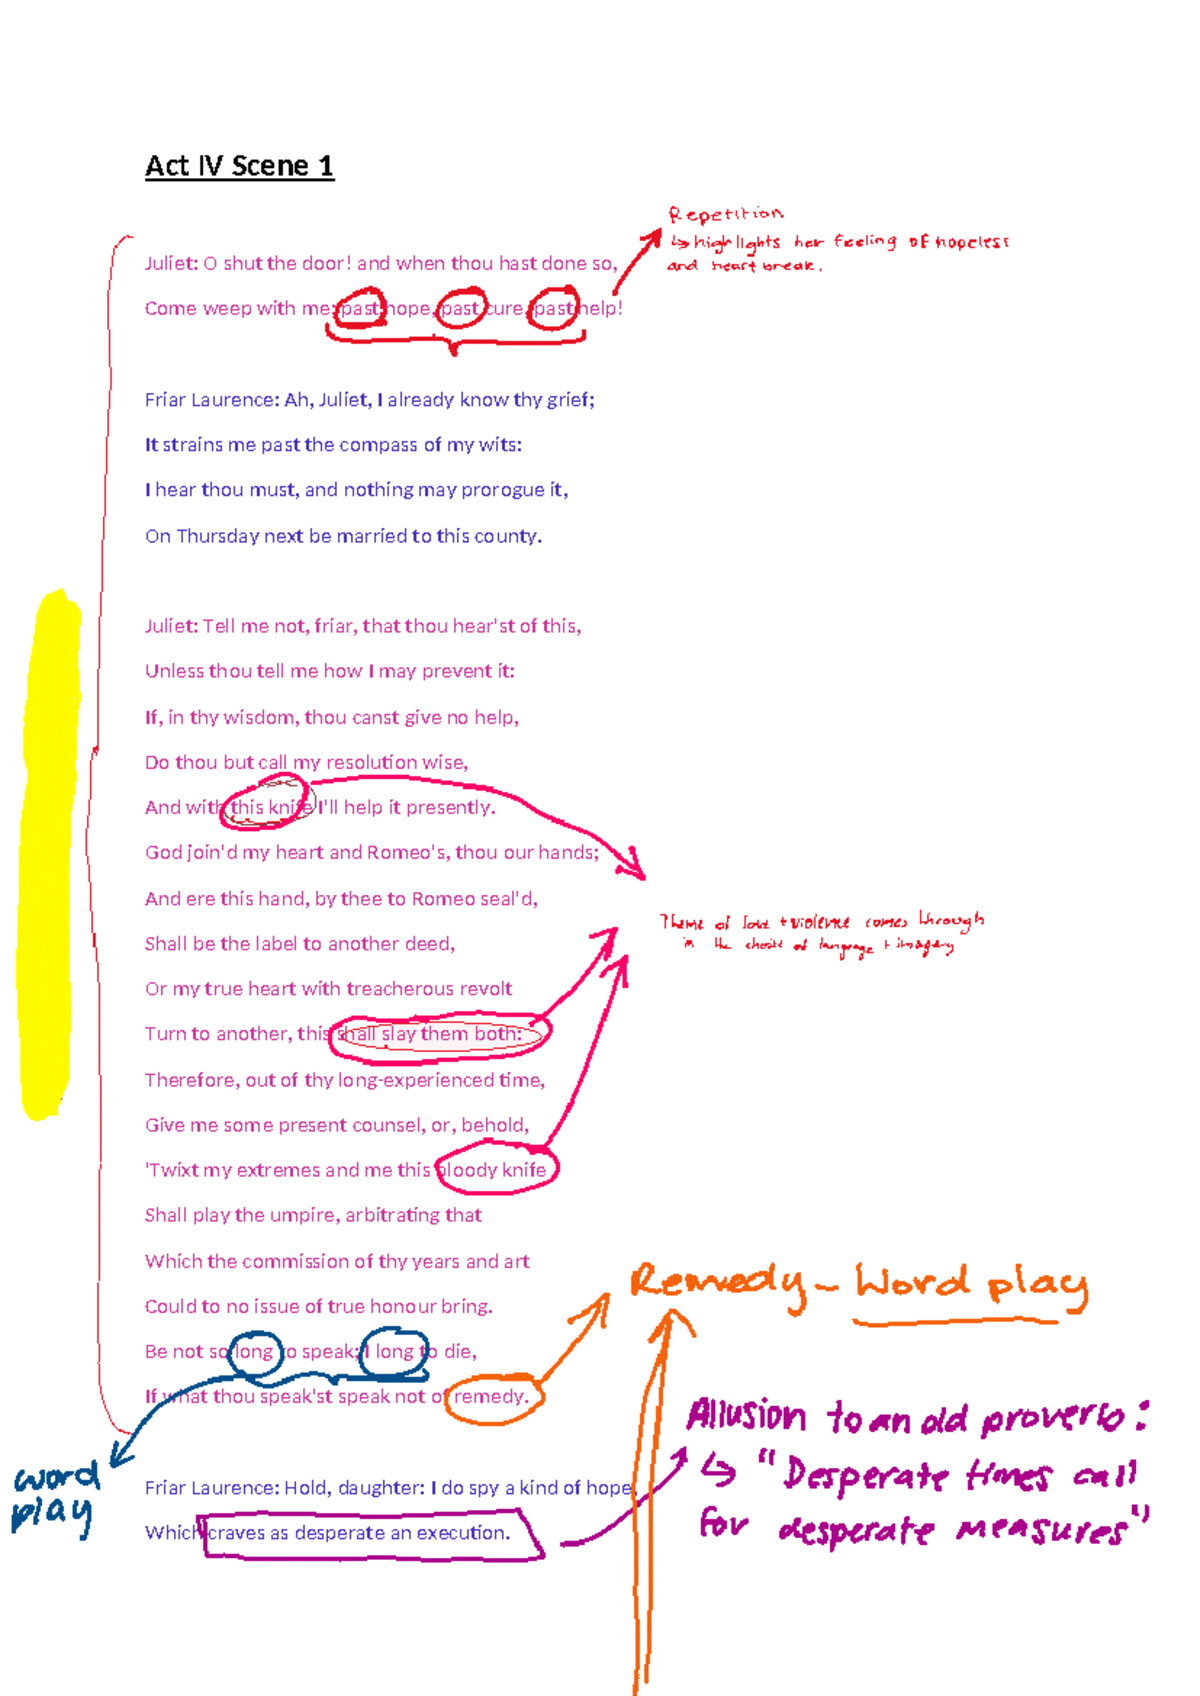 Act IV Scene 1
Repetition
↳ highlights her feeling of hopeless
and heart break.
Juliet: O shut the door! and when thou hast done so,
Come weep with me; past hope, past cure, past help!
Friar Laurence: Ah, Juliet, I already know thy grief;
It strains me past the compass of my wits:
I hear thou must, and nothing may prorogue it,
On Thursday next be married to this county.
Juliet: Tell me not, friar, that thou hear'st of this,
Unless thou tell me how I may prevent it:
If, in thy wisdom, thou canst give no help,
Do thou but call my resolution wise,
And with this knife I'll help it presently.
God join'd my heart and Romeo's, thou our hands;
And ere this hand, by thee to Romeo seal'd,
Shall be the label to another deed,
Or my true heart with treacherous revolt
Turn to another, this shall slay them both:
Therefore, out of thy long-experienced time,
Give me some present counsel, or, behold,
'Twixt my extremes and me this bloody knife
Shall play the umpire, arbitrating that
Which the commission of thy years and art
Could to no issue of true honour bring.
Be not so long to speak; I long to die,
If what thou speak'st speak not of remedy.
Theme of love + violence comes through
in the choice of language + imagery
Remedy - Word play
word
play
Friar Laurence: Hold, daughter: I do spy a kind of hope,
Which craves as desperate an execution.
Allusion to an old proverb:
↳ "Desperate times call
for desperate measures"